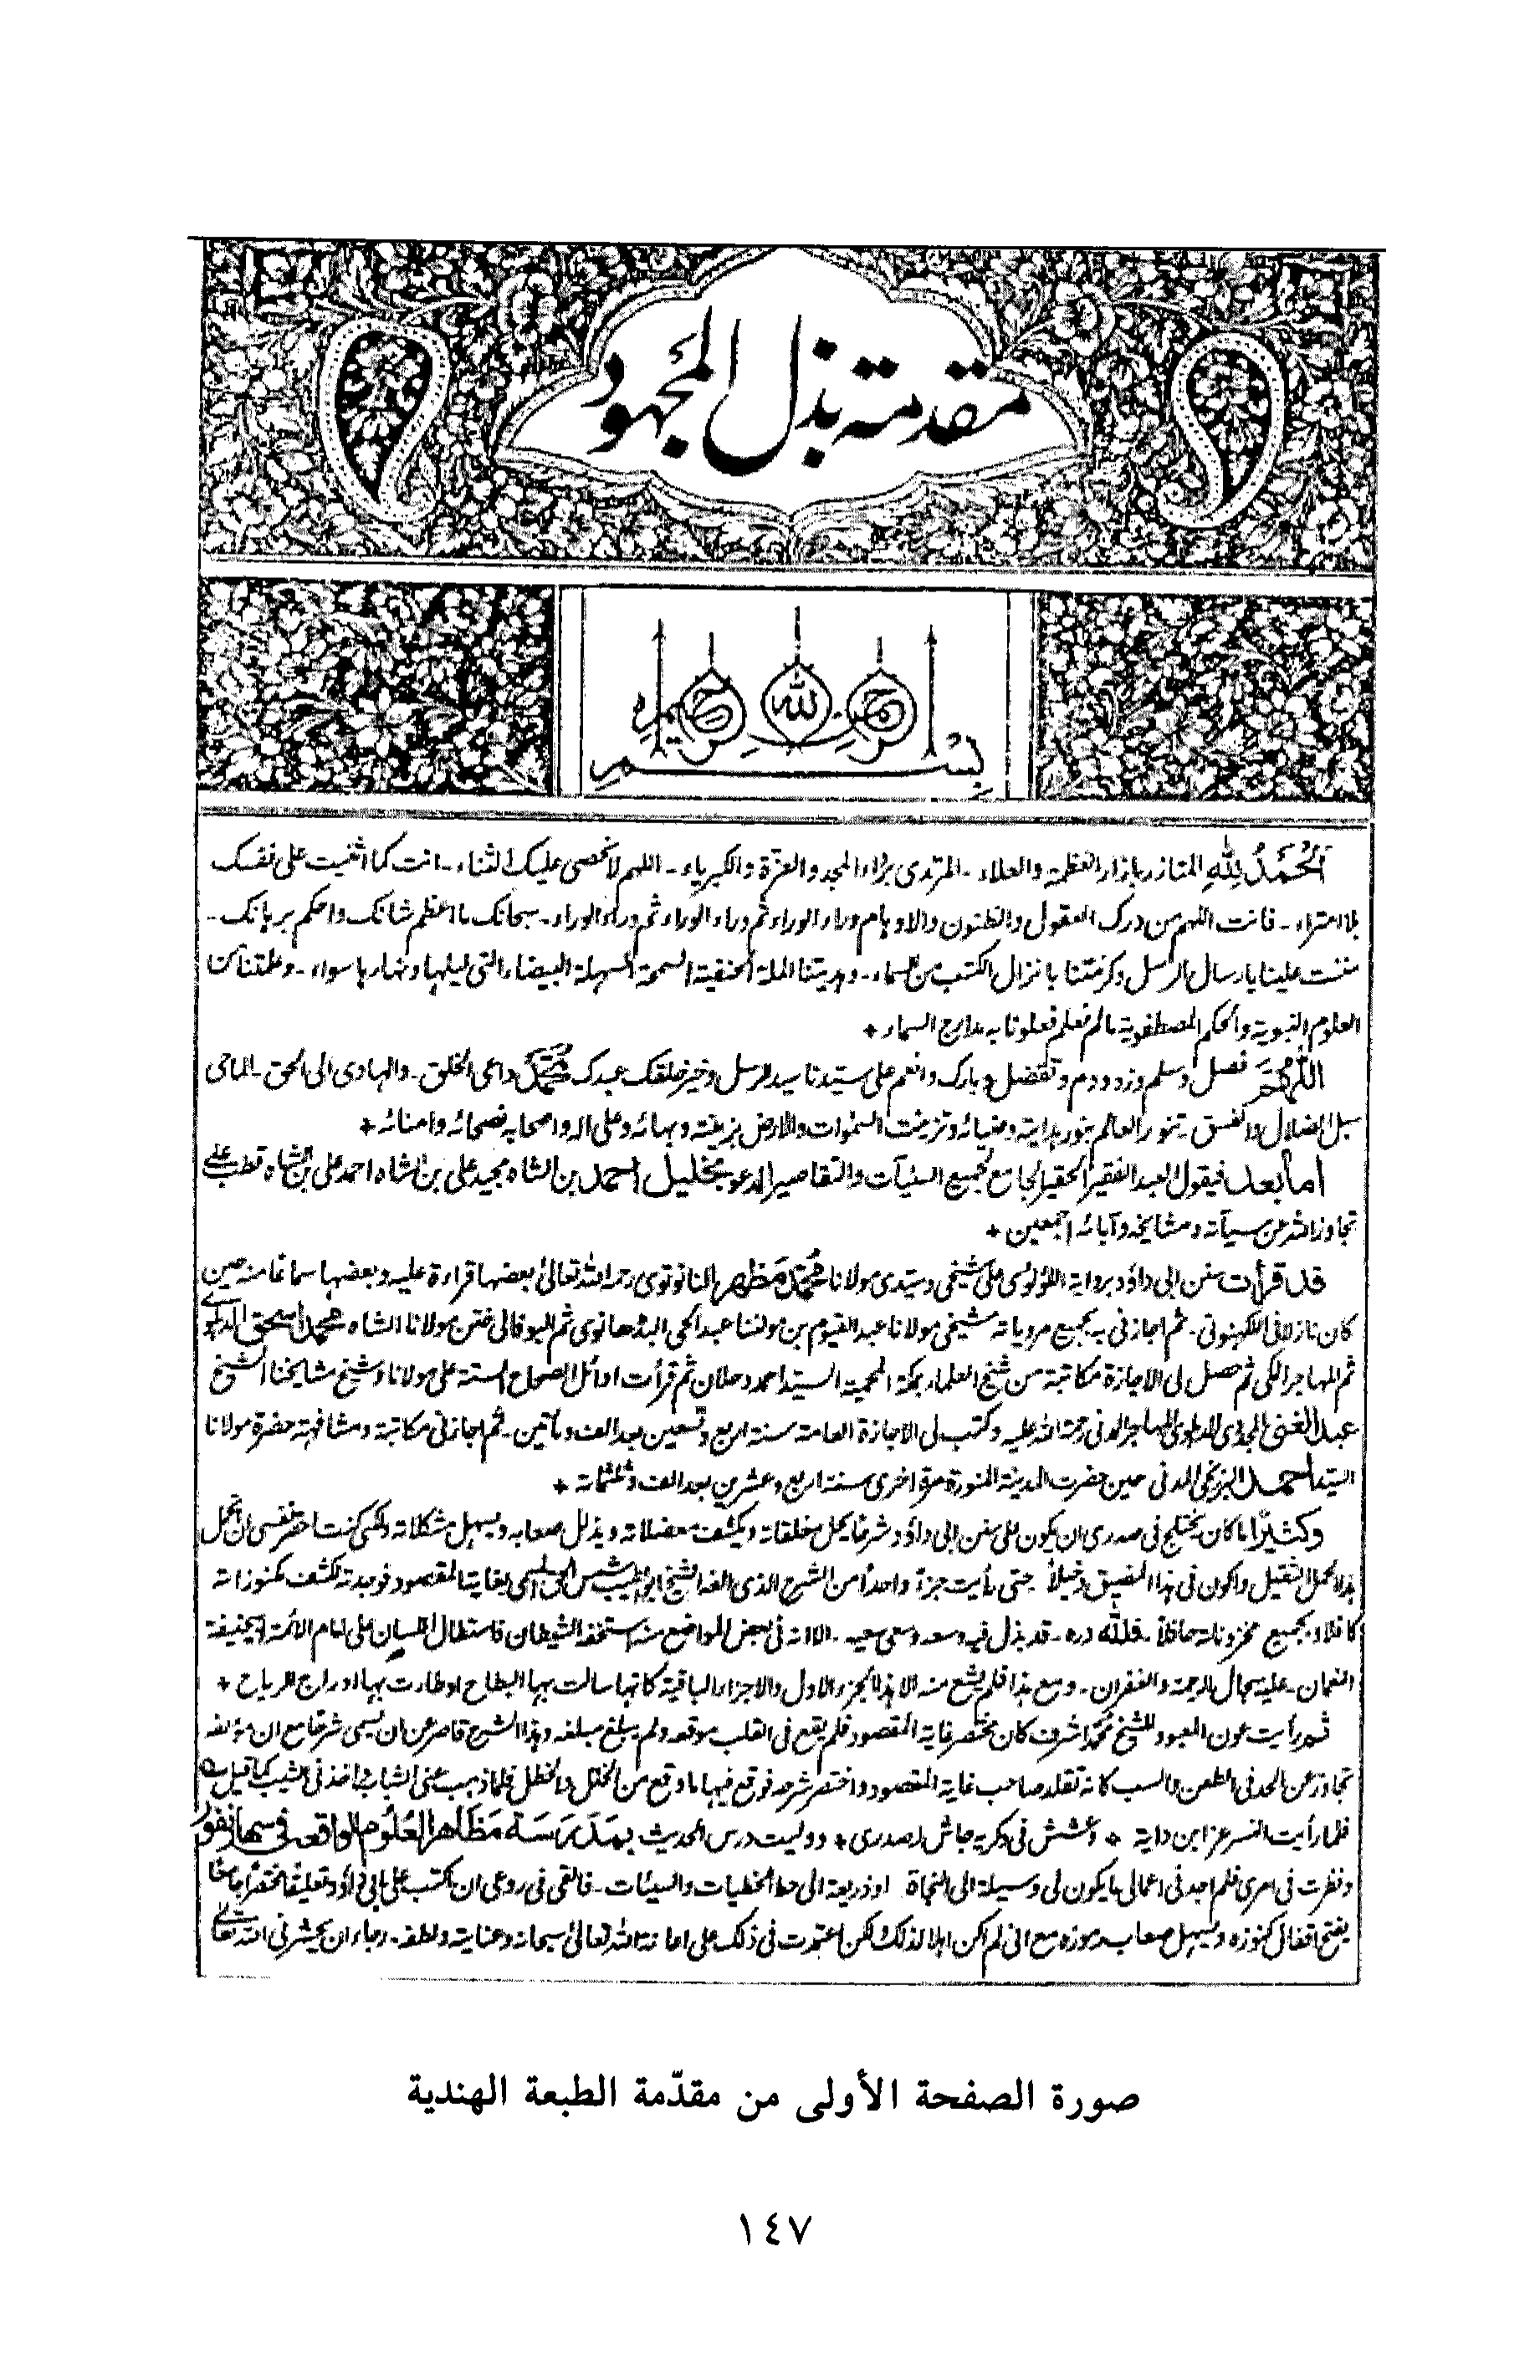 مقدمة بذل المجهود
بسم الله الرحمن الرحيم
اَلْحَمْدُ لِلّٰهِ المتازر بازار العظمة والعلاء ـ المرتدى برداء المجد والعزة والكبرياء ـ اللهم لا نحصى عليك الثناء ـ انت كما اثنيت على نفسك
بلا امتراء ـ فانت اللهم من درك العقول والظنون والاوهام وراء الوراء ثم وراء الوراء ثم وراء الوراء ـ سبحانك ما اعظم شانك واحكم برهانك ـ
مننت علينا بارسال الرسل وكرمتنا بانزال الكتب من السماء ـ وهديتنا الملة الحنفية السمحة السهلة البيضاء التى ليلها ونهارها سواء ـ وعلمتنا من
العلوم النبوية والحكم المصطفوية ما لم نعلم فعلونا به مدارج السماء ٭
اللّٰهم فصل وسلم وزد ودم وتفضل وبارك وانعم على سيدنا سيد الرسل وخير خلقك عبدك مُحَمَّد داعى الخلق ـ والهادى الى الحق ـ الماحى
سبل الضلال والفسق ـ تنور العالم بنور هدايته وضيائه وتزينت السموات والارض بزينته وبهائه وعلى اله واصحابه نصحائه وامنائه ٭
اما بعد فيقول العبد الفقير الحقير الجامع لجميع السئيآت والتقاصير المدعو بخليل احمد بن الشاه مجيد على بن الشاه احمد على بن الشاه قطب على
تجاوز الله عن سيآته ومشايخه وآبائه اجمعين ٭
قد قرأت سنن ابى داؤد برواية اللؤلوى على شيخى وسيدى مولانا مُحَمَّد مَظهر النانوتوى رحمه الله تعالىٰ بعضها قراءة عليه وبعضها سماعا منه حين
كان نازلا فى اللكهنوتى ـ ثم اجازنى به بجميع مروياته شيخى مولانا عبد القيوم بن مولانا عبد الحى البدهانوى ثم البوفالى ختن مولانا الشاه محمد اسحٰق الدهلوى
ثم المهاجر المكى ثم حصل لى الاجازة مكاتبة من شيخ العلماء بمكة المحمية السيد احمد دحلان ثم قرأت اوائل الصحاح الستة على مولانا وشيخ مشايخنا الشيخ
عبد الغنى المجددى الدهلوى المهاجر المدنى رحمة الله عليه وكتب لى الاجازة العامة سنة اربع وتسعين بعد الف ومأتين ـ ثم اجازنى مكاتبة ومشافهة حضرة مولانا
السيد احمد البرزنجى المدنى حين حضرت المدينة المنورة مرة اخرى سنة اربع وعشرين بعد الف وثلثمائة ٭
وكثيرًا ما كان يختلج فى صدرى ان يكون على سنن ابى داؤد شرحا يحل مغلقاته ويكشف معضلاته ويذلل صعابه ويسهل مشكلاته ولكنى كنت احقر نفسى ان تحمل
هذا الحمل الثقيل واكون فى هذا المضيق دخيلاً حتى رأيت جزءً واحداً من الشرح الذى الفه الشيخ ابو الطيب شمس الحق المسمى بغاية المقصود فوجدته لكشف مكنوزاته
كافلا وبجميع مخزوناته حافلاً ـ فللّٰه دره ـ قد بذل فيه وسعه وسعى سعيه ـ الا انه فى بعض المواضع منه استخفه الشيطان فاستطال اللسان على امام الائمة ابى حنيفة
النعمان ـ عليه سجال الرحمة والغفران ـ ومع هذا فلم يشع منه الا هذا الجزء الاول والاجزاء الباقية كانها سالت بها البطاح او طارت بها ادراج الرياح ٭
ثم رأيت عون المعبود للشيخ محمد اشرف كان مختصر غاية المقصود فلم يقع فى القلب موقعه ولم يبلغ مبلغه وهذا الشرح قاصر عن ان يسمى شرحا مع ان مؤلفه
تجاوز عن الحد فى الطعن والسب كانه تقلد صاحب غاية المقصود واختصر شرحه فوقع فيها ما وقع من الخلل والخطل فلما ذهب عنى الشباب واخذ فى الشيب كما قيل
فلما رأيت النسر عز ابن داية ٭ وعشش فى وكريه جاش له صدرى ٭ ووليت درس الحديث بمَدرَسَة مَظَاهر العُلُوم الواقعة فى سهارنفور
ونظرت فى امرى فلم اجد فى اعمالى ما يكون لى وسيلة الى النجاة او ذريعة الى حط الخطيات والسيئات ـ فالقى فى روعى ان اكتب على ابى داؤد تعليقا مختصرا جامعا
يفتح اقفال كنوزه ويسهل صعاب رموزه مع انى لم اكن اهلا لذلك ولكن اعتمدت فى ذلك على اعانة الله تعالىٰ سبحانه وعنايته ولطفه ـ رجاء ان يحشرنى الله تعالى
صورة الصفحة الأولى من مقدّمة الطبعة الهندية
١٤٧